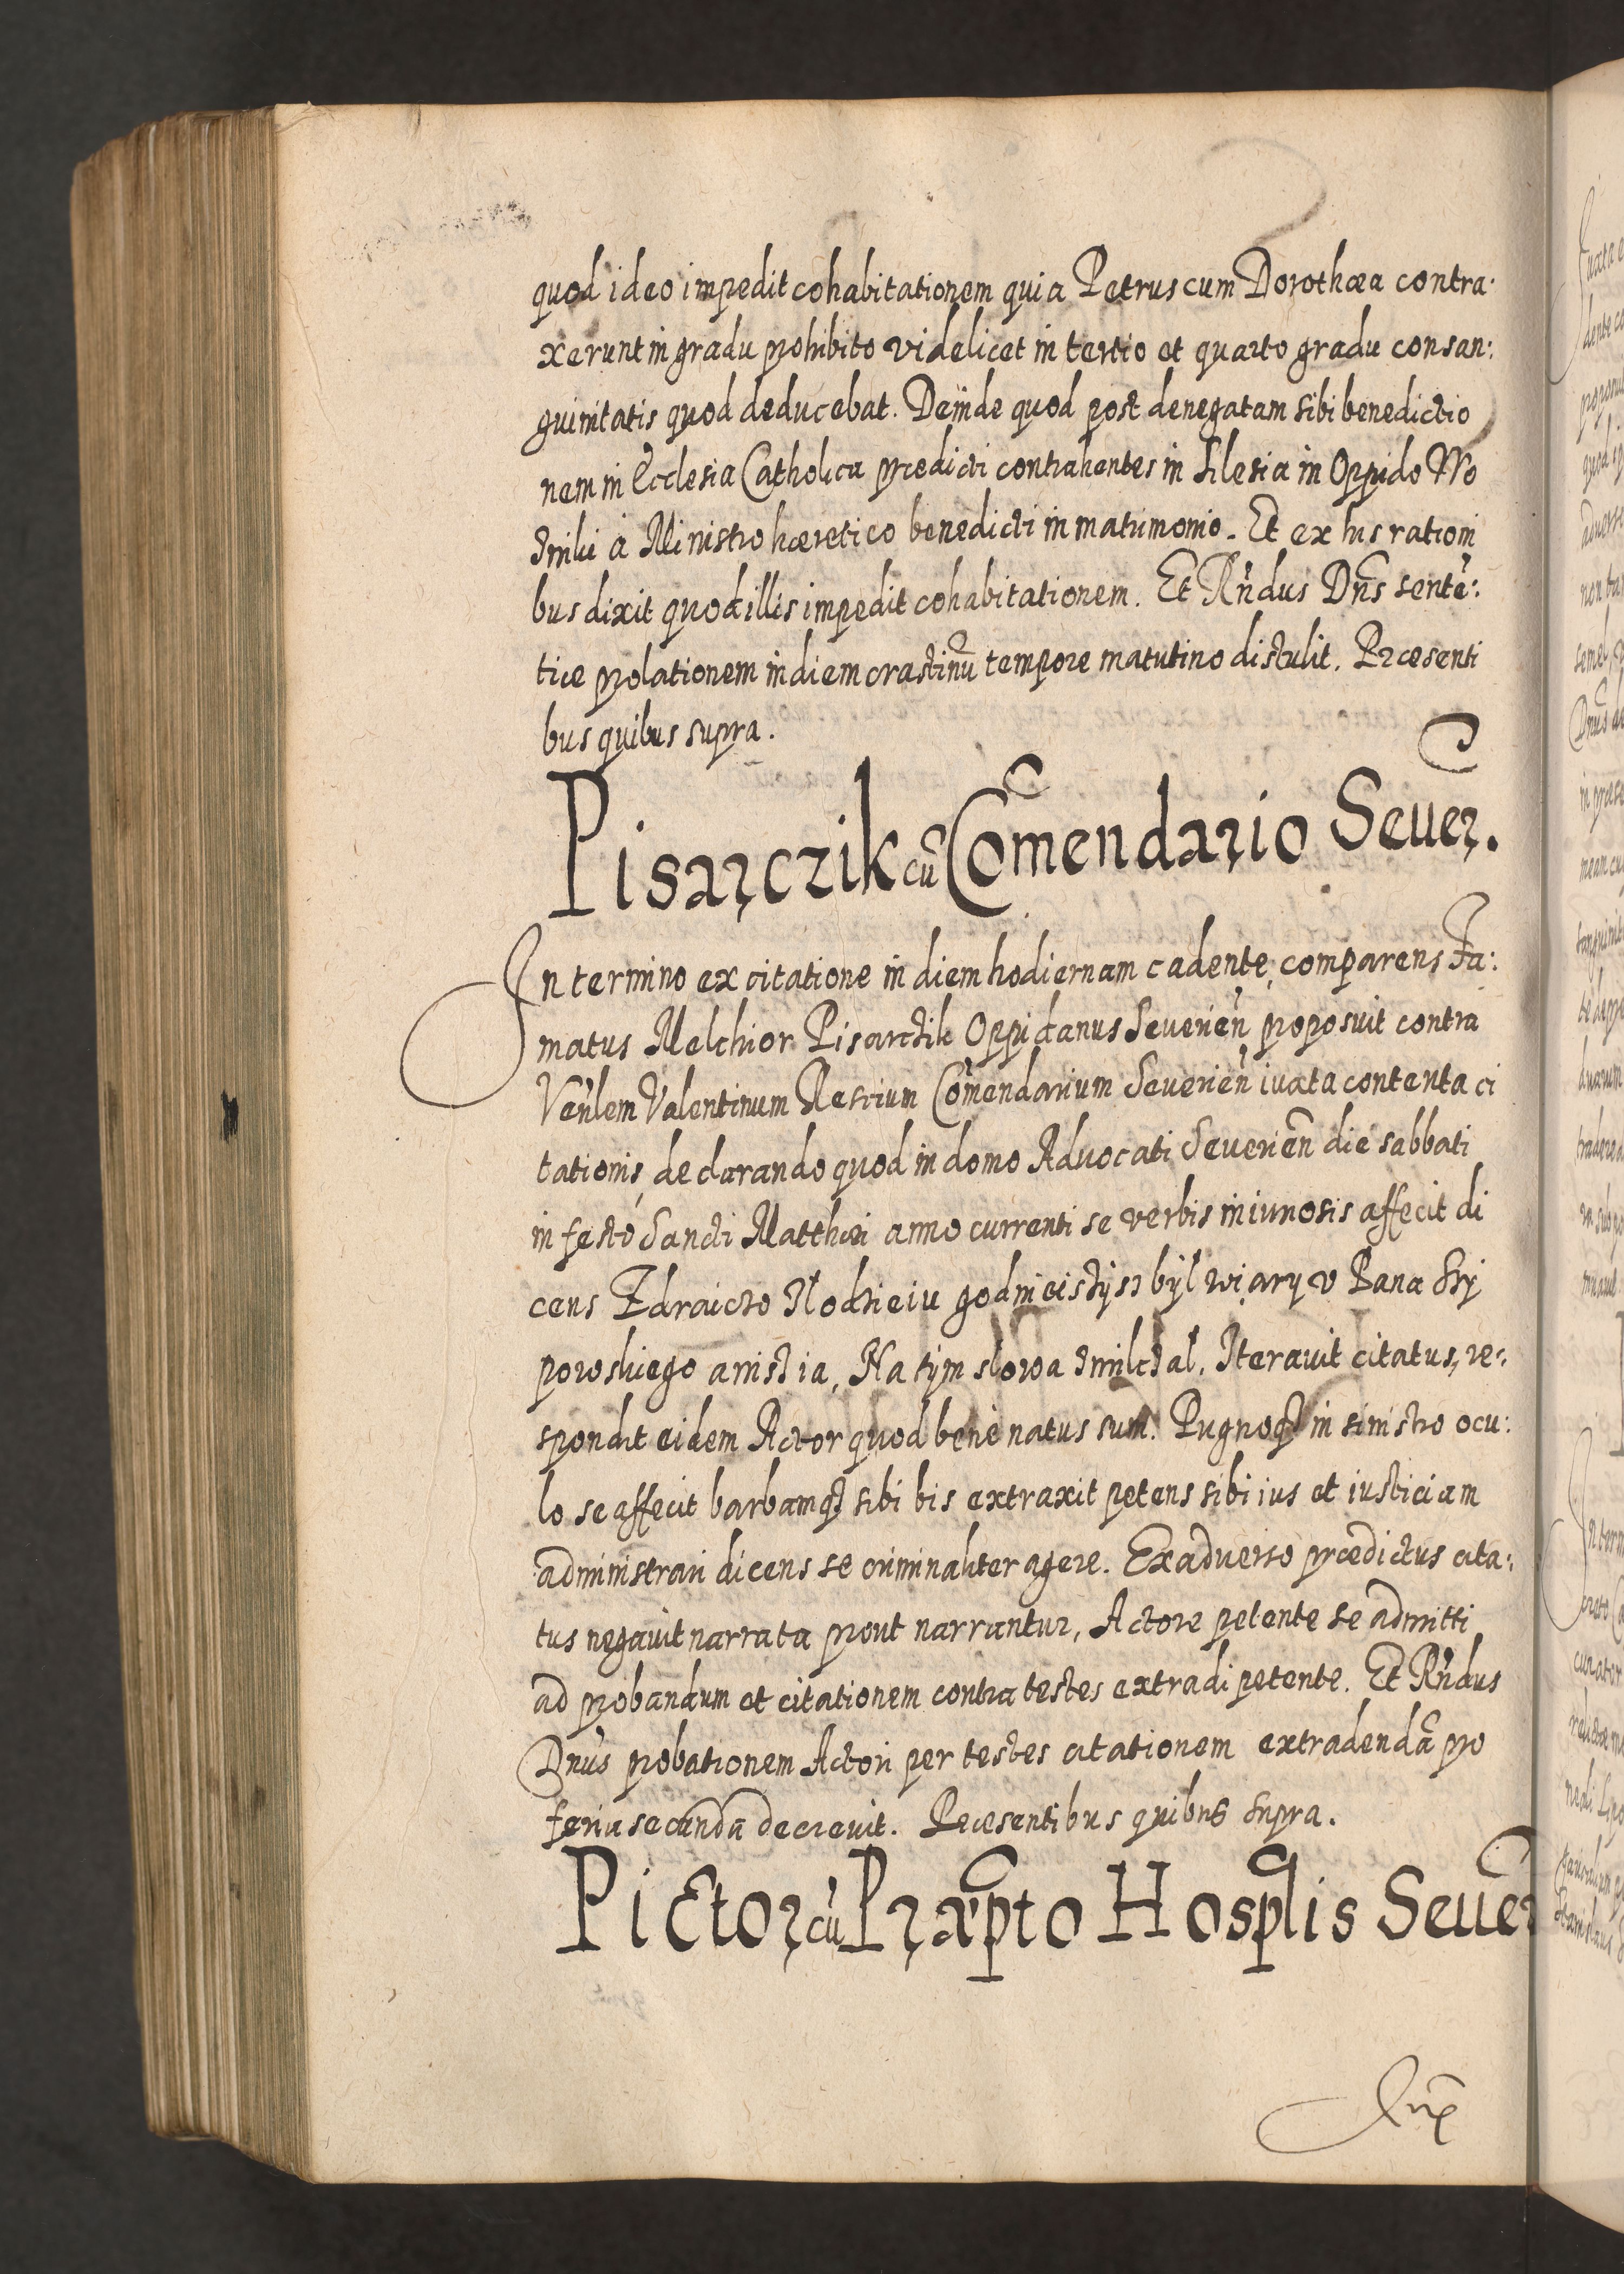 quod ideo impedit cohabitationem quia Petrus cum Dorothæa contra:
xerunt in gradu prohibito videlicet in tertio et quarto gradu consan:
guinitatis quod deducebat. Deinde quod post denegatam sibi benedictio
nem in Ecclesia Catholica prædicti contrahentes in Silesia in Oppido Wo
zniki à Ministro hæretico benedicti in matrimonio. Et ex his rationi
bus dixit quod illis impedit cohabitationem. Et Rñdus Dñs sentē:
tiæ prolationem in diem crastinū tempore matutino distulit. Præsenti
bus quibus supra.
Pisarczik cū Cōmendario Seuer.
In termino ex citatione in diem hodiernam cadente, comparens Fa:
matus Melchior Pisarczik Oppidanus Seuerień proposuit contra
Veñlem Valentinum Cōmendarium Seuerień iuxta contenta ci
tationis, declarando quod in domo Advocati Seuerień die sabbati
in festo Sancti Matthæi anno currenti se verbis iniuriosis affecit di
cens Zdraiczo Zlodzieiu godnieistysz był wiary v Pana
powskiego anisz ia, Na tym slowa zmilczal. Iterauit citatus, re:
spondit eidem Actor quod bene natus sum. Pugnoq3 in sinistro ocu:
lo se affecit barbamq3 sibi bis extraxit petens sibi ius et iusticiam
administrari dicens se criminaliter agere. Ex adverso prædictus cita:
tus negauit narrata prout narrantur, Actore petente se admitti
ad probandum et citationem contra testes extradi petente. Et Rñdus
Dñus probationem Actori per testes citationem extradendã pro
feria secunda decreuit. Præsentibus quibus supra.
Pictor cū Præpto Hosplis Seuer